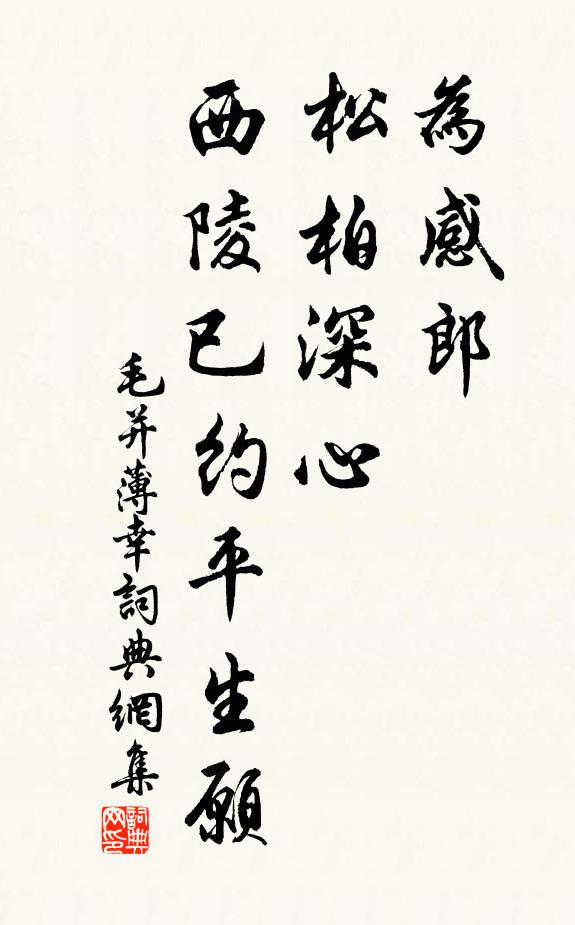 為感郎
松柏深心
西陵已約平生願
毛并薄幸詞典網集
詞典网印